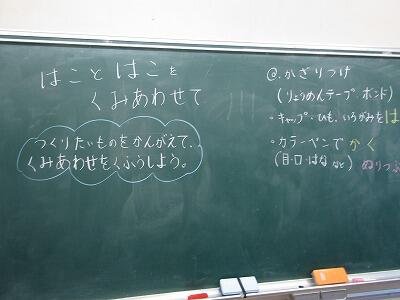 はことはこを
くみあわせて
つくりたいものをかんがえて、
くみあわせをくふうしよう。
@.かざりつけ
(りょうめんテープ・ボンド)
・キャップ・ひも、いろがみをは
・カラーペンでかく
(目・口・はな など)
ぬりつぶ